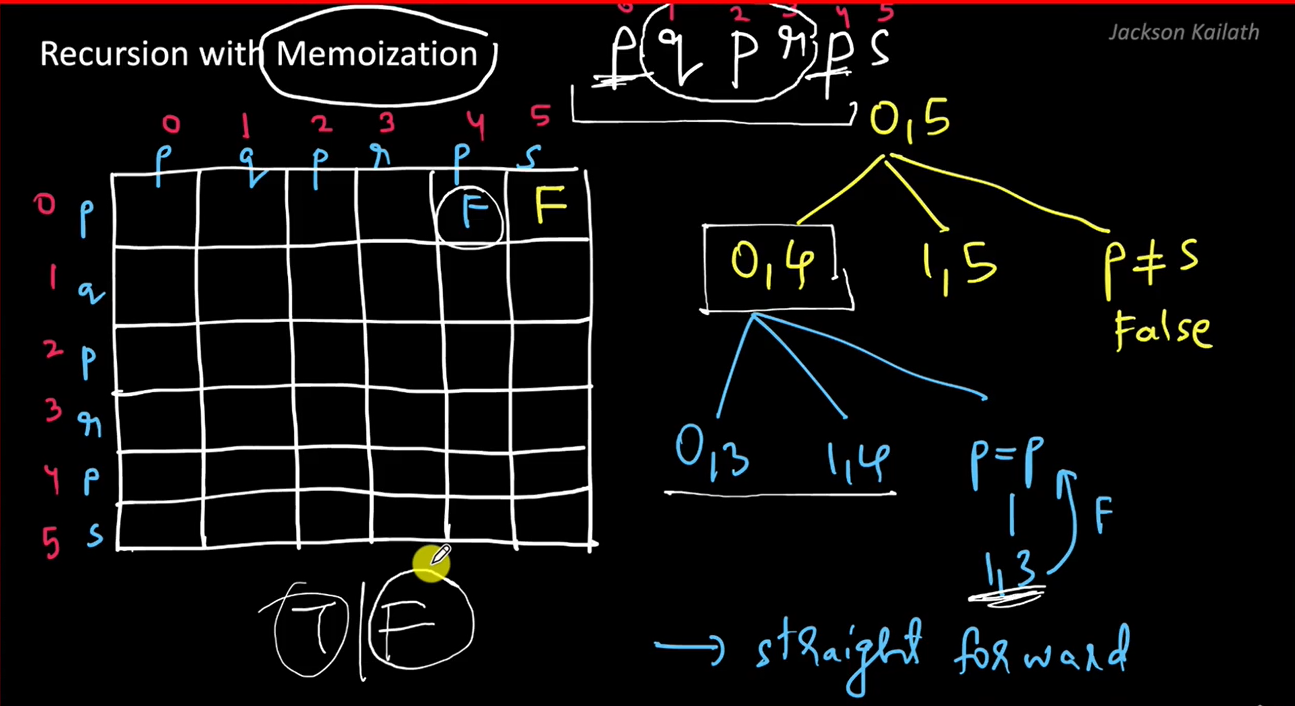 Recursion with Memoization
Jackson Kailath
0 1 2 3 4 5
p q p r p s
0 1 2 3 4 5
p q p r p s
0 p F F
1 q
2 p
3 r
4 p
5 s
T | F
0,5
0,4 1,5 p ≠ s
False
0,3 1,4 p = p
F
1,3
→ straight forward